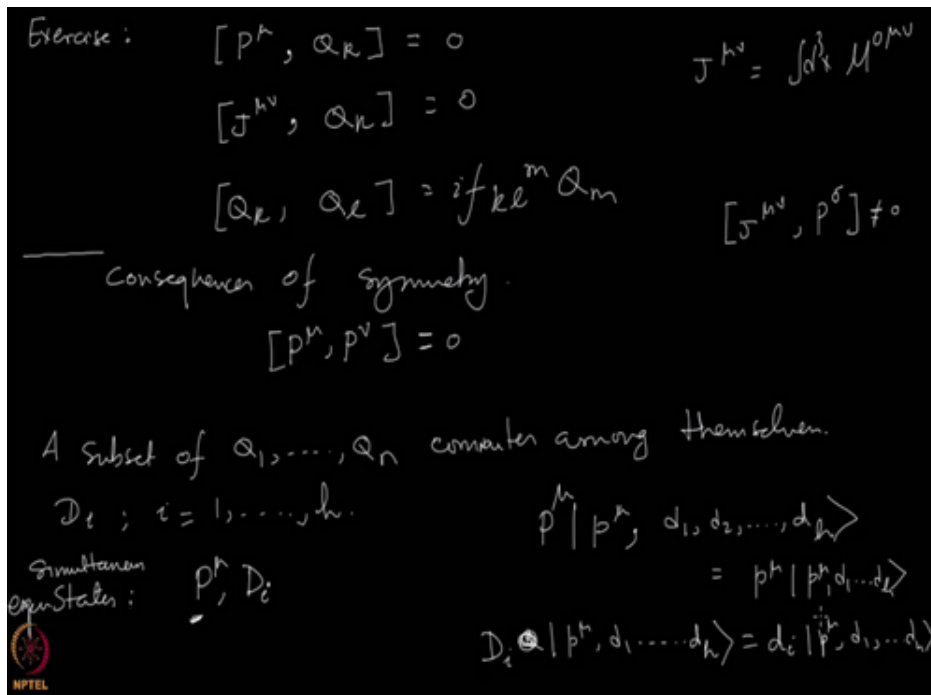 Exercise : [P^μ, Q_k] = 0
J^μν = ∫d³x M^0μν
[J^μν, Q_k] = 0
[Q_k, Q_l] = i f_kl^m Q_m
[J^μν, P^σ] ≠ 0
Consequences of symmetry.
[P^μ, P^ν] = 0
A subset of Q_1, ...., Q_n commutes among themselves.
D_i ; i = 1, ...., h.
P^μ | p^μ, d_1, d_2, ...., d_h⟩
= p^μ | p^μ, d_1 ... d_h⟩
Simultaneous
eigenstates : P^μ, D_i
D_i | p^μ, d_1 ..... d_h⟩ = d_i | p^μ, d_1, ... d_h⟩
NPTEL